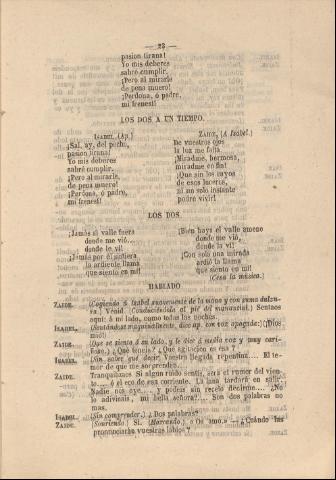 — 23 —
pasion tirana!
Yo mis deberes
sabré cumplir.
¡Pero al mirarle
de pena muero!
¡Perdona, ó padre,
mi frenesí!
LOS DOS A UN TIEMPO.
ISABEL (Ap.)
¡Sal, ay, del pecho,
pasion tirana!
Yo mis deberes
sabré cumplir.
¡Pero al mirarle,
de pena muero!
¡Perdona, ó padre,
mi frenesí!
ZAIDE. (A Isabel.)
De vuestros ojos
la luz me falta.
¡Miradme, hermosa,
miradme en fin!
¡Que sin los rayos
de esos luceros,
ni un solo instante
podré vivir!
LOS DOS.
¡Jamás al valle fuera
donde me vió...
donde le ví!
¡Jamás por él sintiera
la ardiente llama
que siento en mí!
¡Bien haya el valle ameno
donde me vió,
donde la ví!
¡Con solo una mirada
ardió la llama
que siento en mí!
(Cesa la música.)
HABLADO
ZAIDE. (Cogiendo á Isabel suavemente de la mano y con suma dulzu-
ra.) Venid. (Conduciéndola al pié del manantial.) Sentaos
aquí: á mi lado, como todas las noches.
ISABEL. (Sentándose maquinalmente, dice ap. con voz apagada:) (¡Dios
mio!)
ZAIDE. (Que se sienta á su lado, y le dice á media voz y muy cari-
ñoso.) ¿Qué teneis? ¿Qué agitacion es esa?
ISABEL. (Sin saber qué decir.) Vuestra llegada repentina... El te-
mor de que me sorprendan...
ZAIDE. Tranquilizaos. Si algun ruido sentís, será el rumor del vien-
to... ó el eco de esa corriente. La luna tardará en salir.
Nadie nos oye... y podeis sin recelo decirme... ¿No
lo adivinais, mi bella señora?... Son dos palabras no
mas.
ISABEL. (Sin comprender.) ¿Dos palabras?
ZAIDE. (Sonriendo.) Sí. (Marcando.) «Os amo.» ¿Cuándo las
pronunciarán vuestros labios?